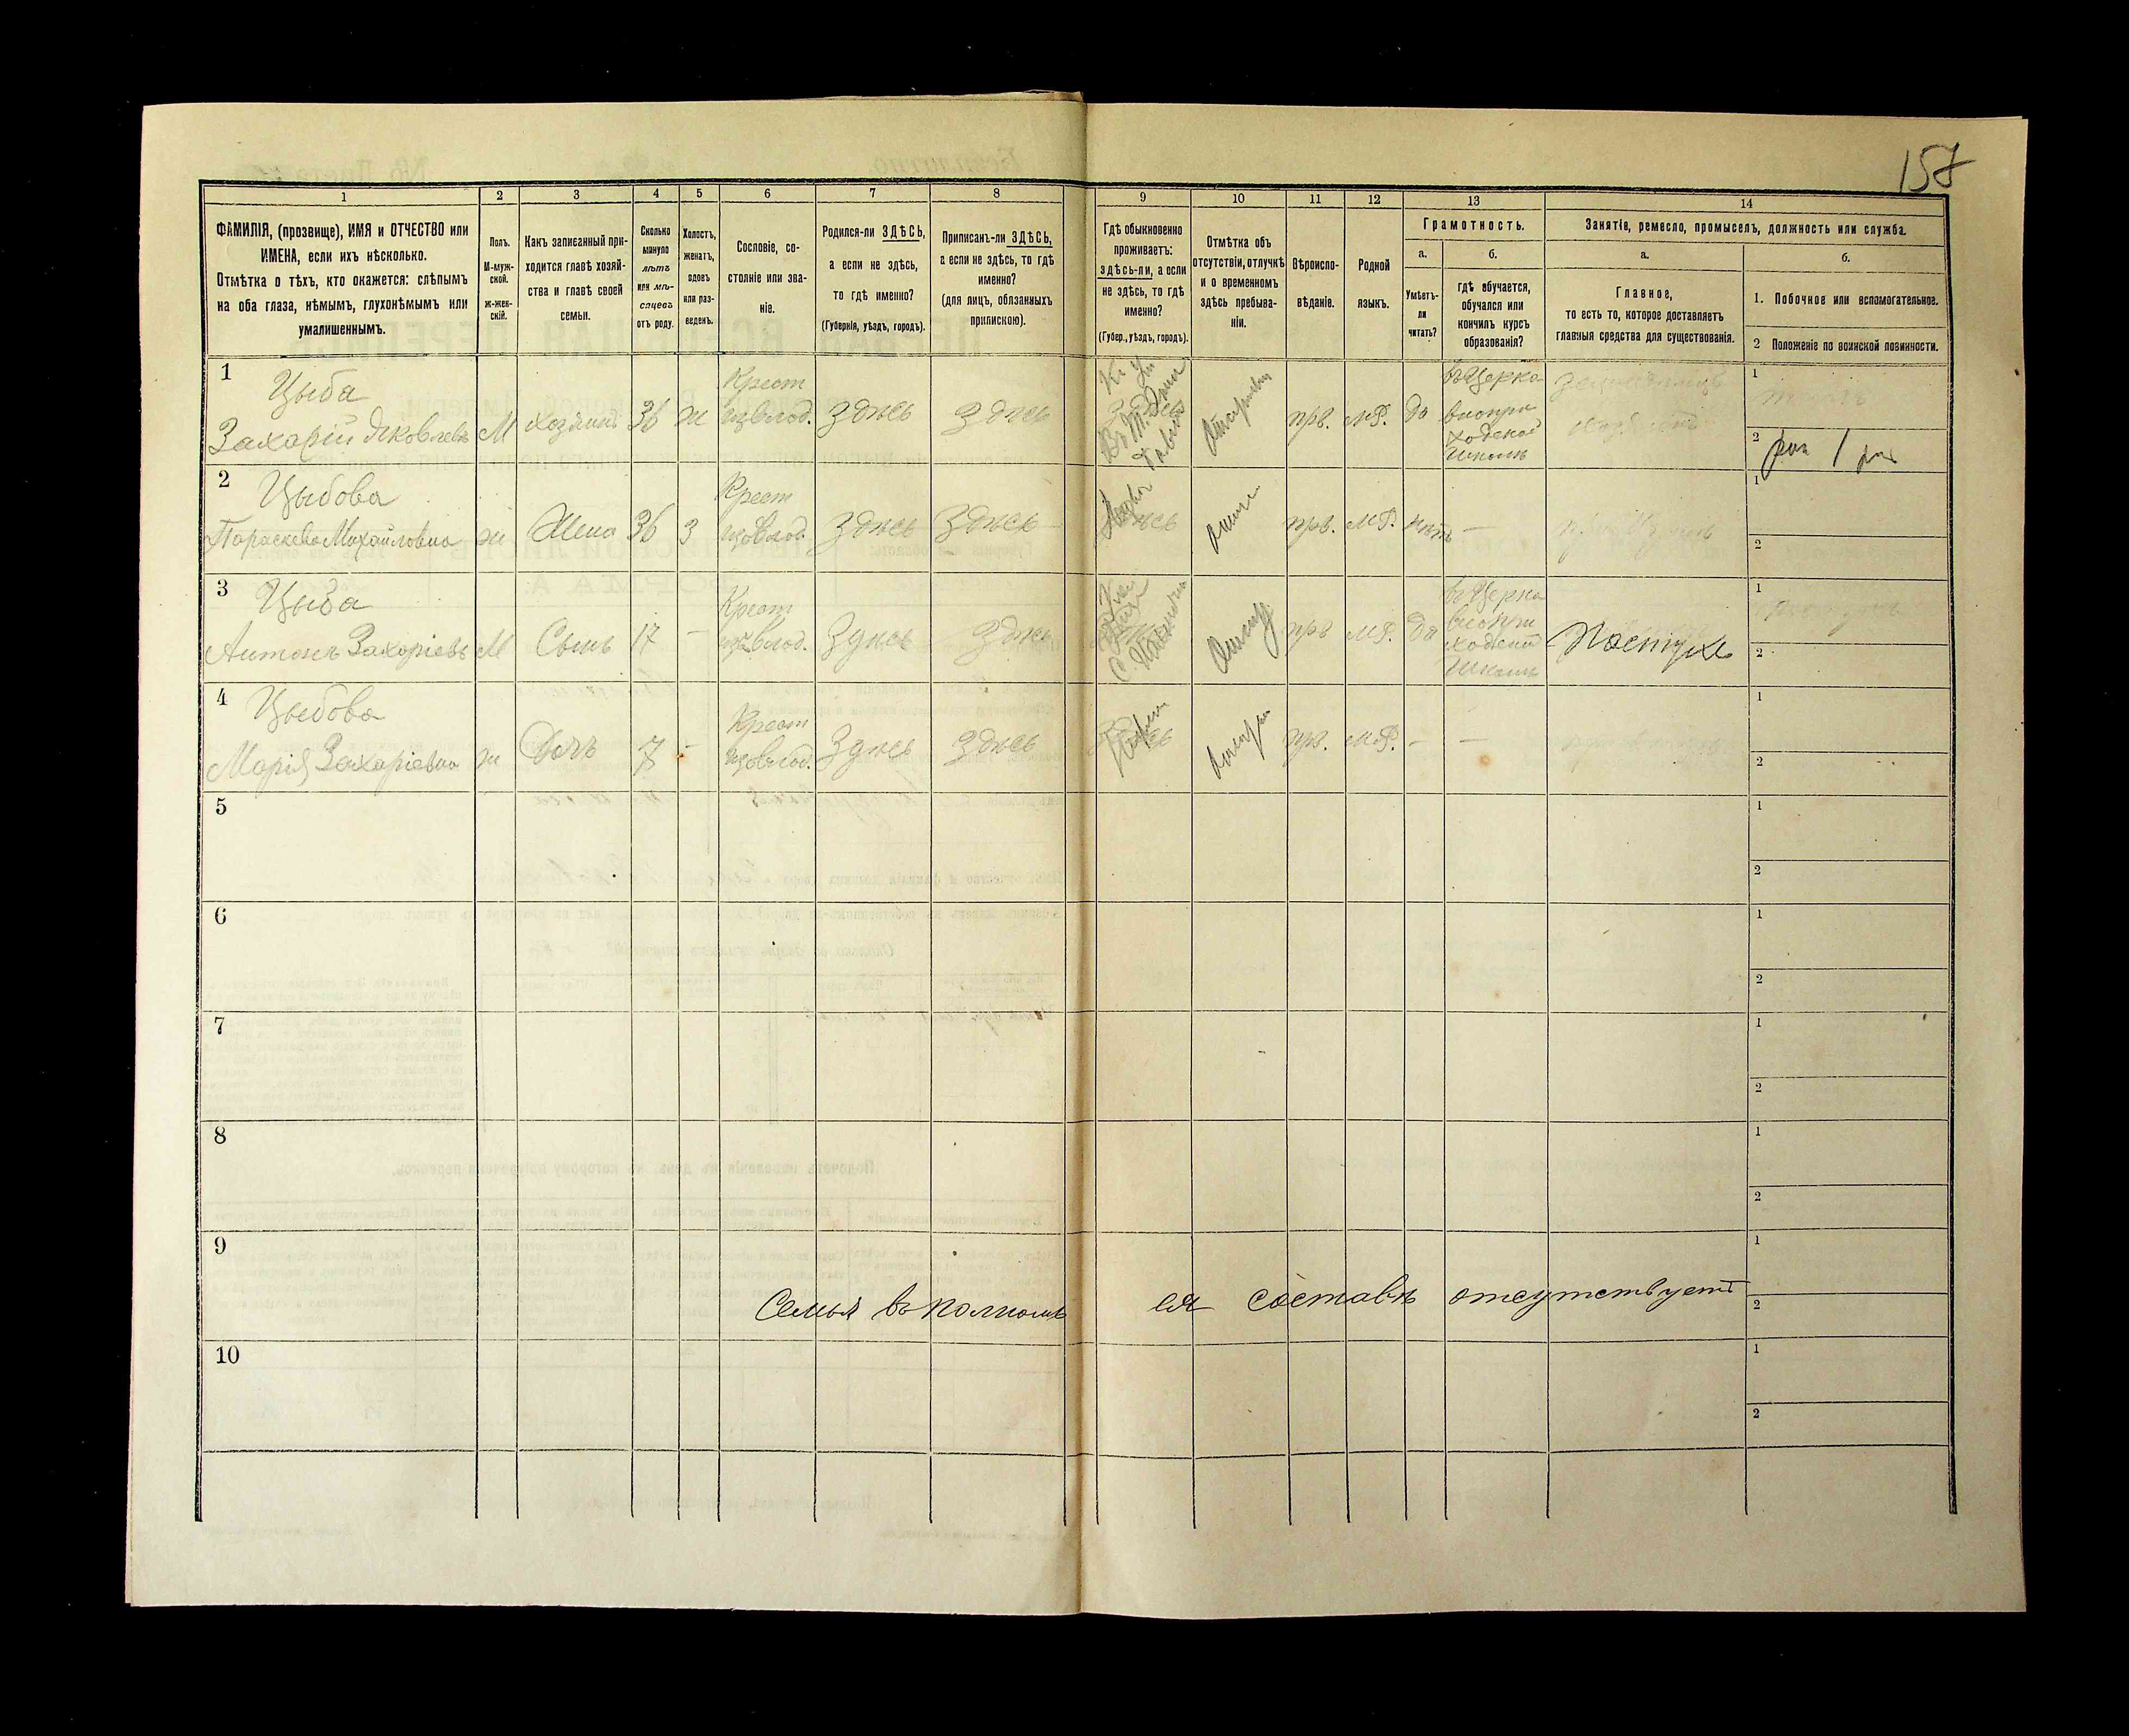 157
1 2 3 4 5 6 7 8 9 10 11 12 13 14
ФАМИЛІЯ, (прозвище), ИМЯ и ОТЧЕСТВО или
ИМЕНА, если ихъ нѣсколько.
Отмѣтка о тѣхъ, кто окажется: слѣпымъ
на оба глаза, нѣмымъ, глухонѣмымъ или
умалишеннымъ.
Полъ.
М-муж-
ской.
ж-жен-
скій.
Какъ записанный при-
ходится главѣ хозяй-
ства и главѣ своей
семьи.
Сколько
минуло
лѣтъ
или мѣ-
сяцевъ
отъ роду.
Холостъ,
женатъ,
вдовъ
или раз-
веденъ.
Сословіе, со-
стояніе или зва-
ніе.
Родился-ли ЗДѢСЬ,
а если не здѣсь,
то гдѣ именно?
(Губернія, уѣздъ, городъ).
Приписанъ-ли ЗДѢСЬ,
а если не здѣсь, то гдѣ
именно?
(для лицъ, обязанныхъ
припискою).
Гдѣ обыкновенно
проживаетъ:
здѣсь-ли, а если
не здѣсь, то гдѣ
именно?
(Губер., уѣздъ, городъ).
Отмѣтка объ
отсутствіи, отлучкѣ
и о временномъ
здѣсь пребыва-
ніи.
Вѣроиспо-
вѣданіе.
Родной
языкъ.
Грамотность.
а.
Умѣетъ-
ли
читать?
б.
гдѣ обучается,
обучался или
кончилъ курсъ
образованія?
Занятія, ремесло, промыселъ, должность или служба.
а.
Главное,
то есть то, которое доставляетъ
главныя средства для существованія.
б.
1. Побочное или вспомогательное.
2 Положеніе по воинской повинности.
1
Цыба
Захарій Яковлевъ
М
хозяинъ
36
ж
Крест
изъвлод.
здѣсь
здѣсь
здѣсь
прв.
мр.
да
въ Церко
вноприходской
Школѣ
1
2
2
Цыбова
Параскева Михайловна
ж
Жена
36
з
Крест
изъвлод.
здѣсь
здѣсь
прв.
мр.
нѣтъ
–
1
2
3
Цыба
Антонъ Захаріевъ
М
Сынъ
17
–
Крест
изъвлод.
здѣсь
здѣсь
прв
мр.
да
въ Церко
внопри
ходской
Школѣ
Пастухъ
1
2
4
Цыбова
Марія Захаріевна
ж
Дочь
7
–
Крест
изъвлод.
здѣсь
здѣсь
прв.
мр.
–
–
1
2
5
1
2
6
1
2
7
1
2
8
1
2
9
1
Семья въ полномъ ея составѣ отсутствуетъ
2
10
1
2